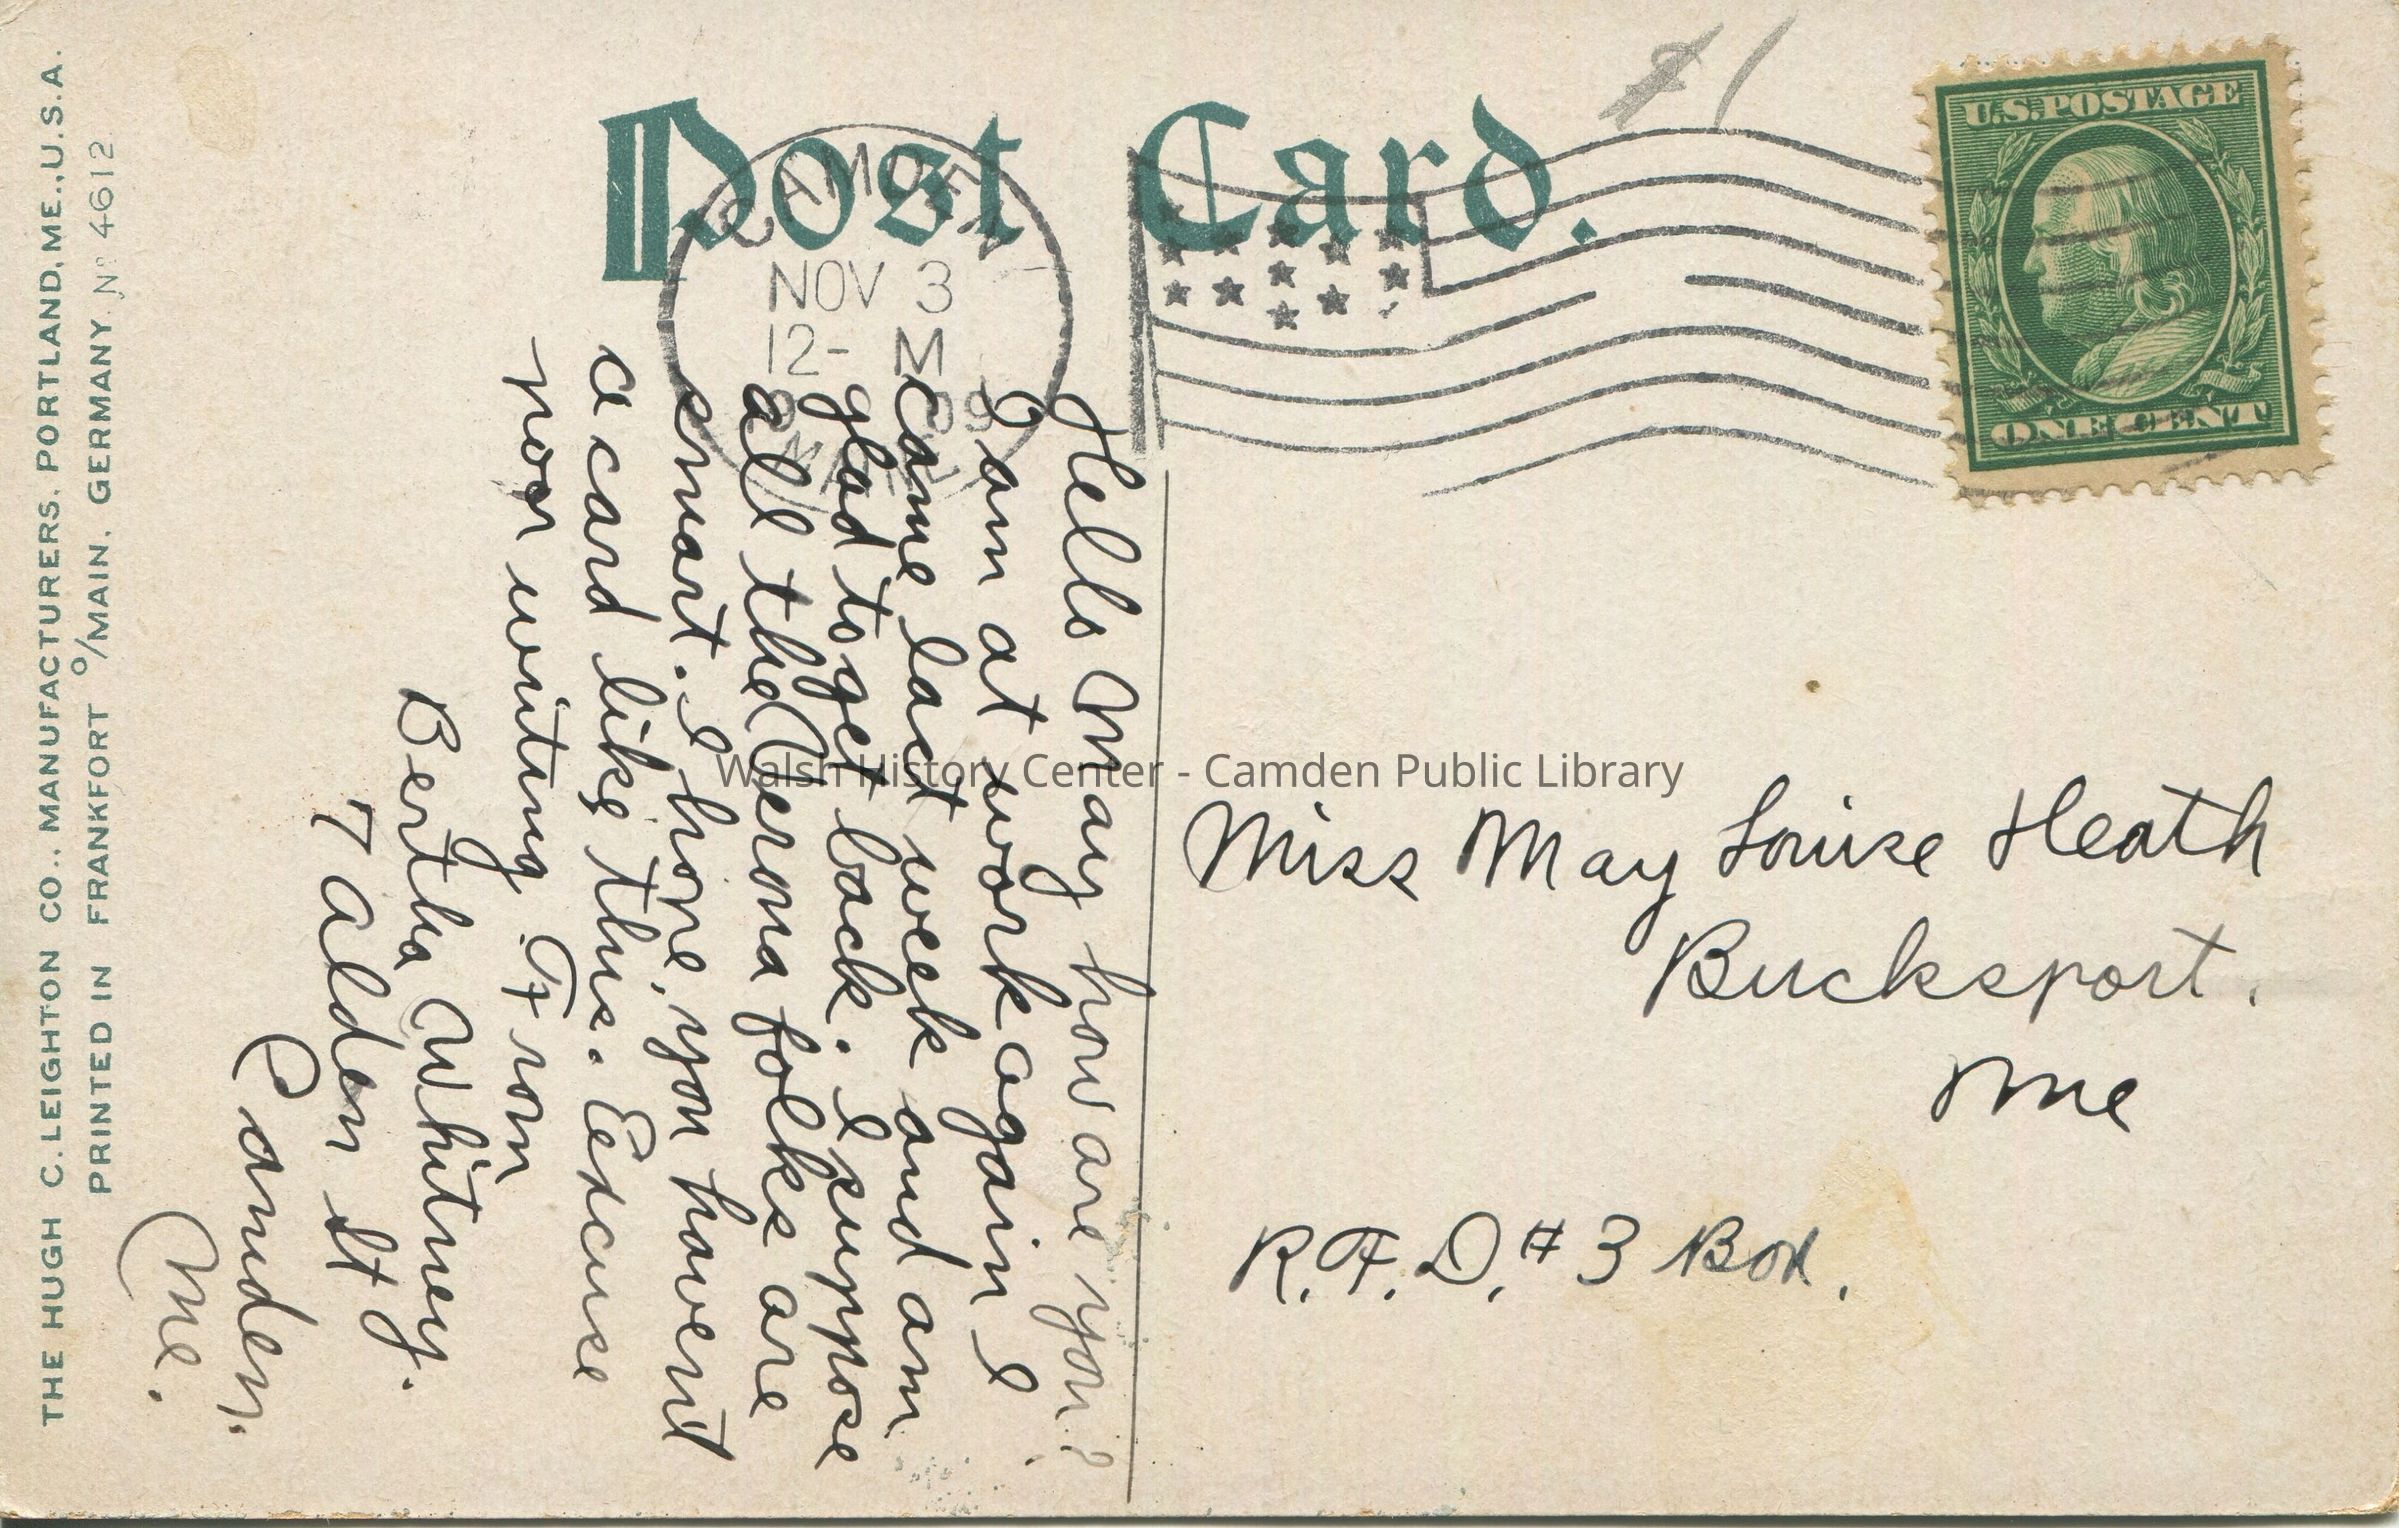 THE HUGH C. LEIGHTON CO., MANUFACTURERS, PORTLAND, ME., U.S.A.
PRINTED IN FRANKFORT O/MAIN, GERMANY. No 4612
Post Card.
#1
CAMDEN
NOV 3
12- M
U.S. POSTAGE
ONE CENT
Hello May how are you?
I am at work again I
came last week and am
glad to get back. I suppose
all the Verona folks are
smart. I hope, you havent
a card like this. Excuse
poor writing. From
Bertha Whitney.
7 Alden St
Camden,
Me.
Miss May Louise Heath
Bucksport.
Me
R.F.D. #3 Box.
Walsh History Center - Camden Public Library